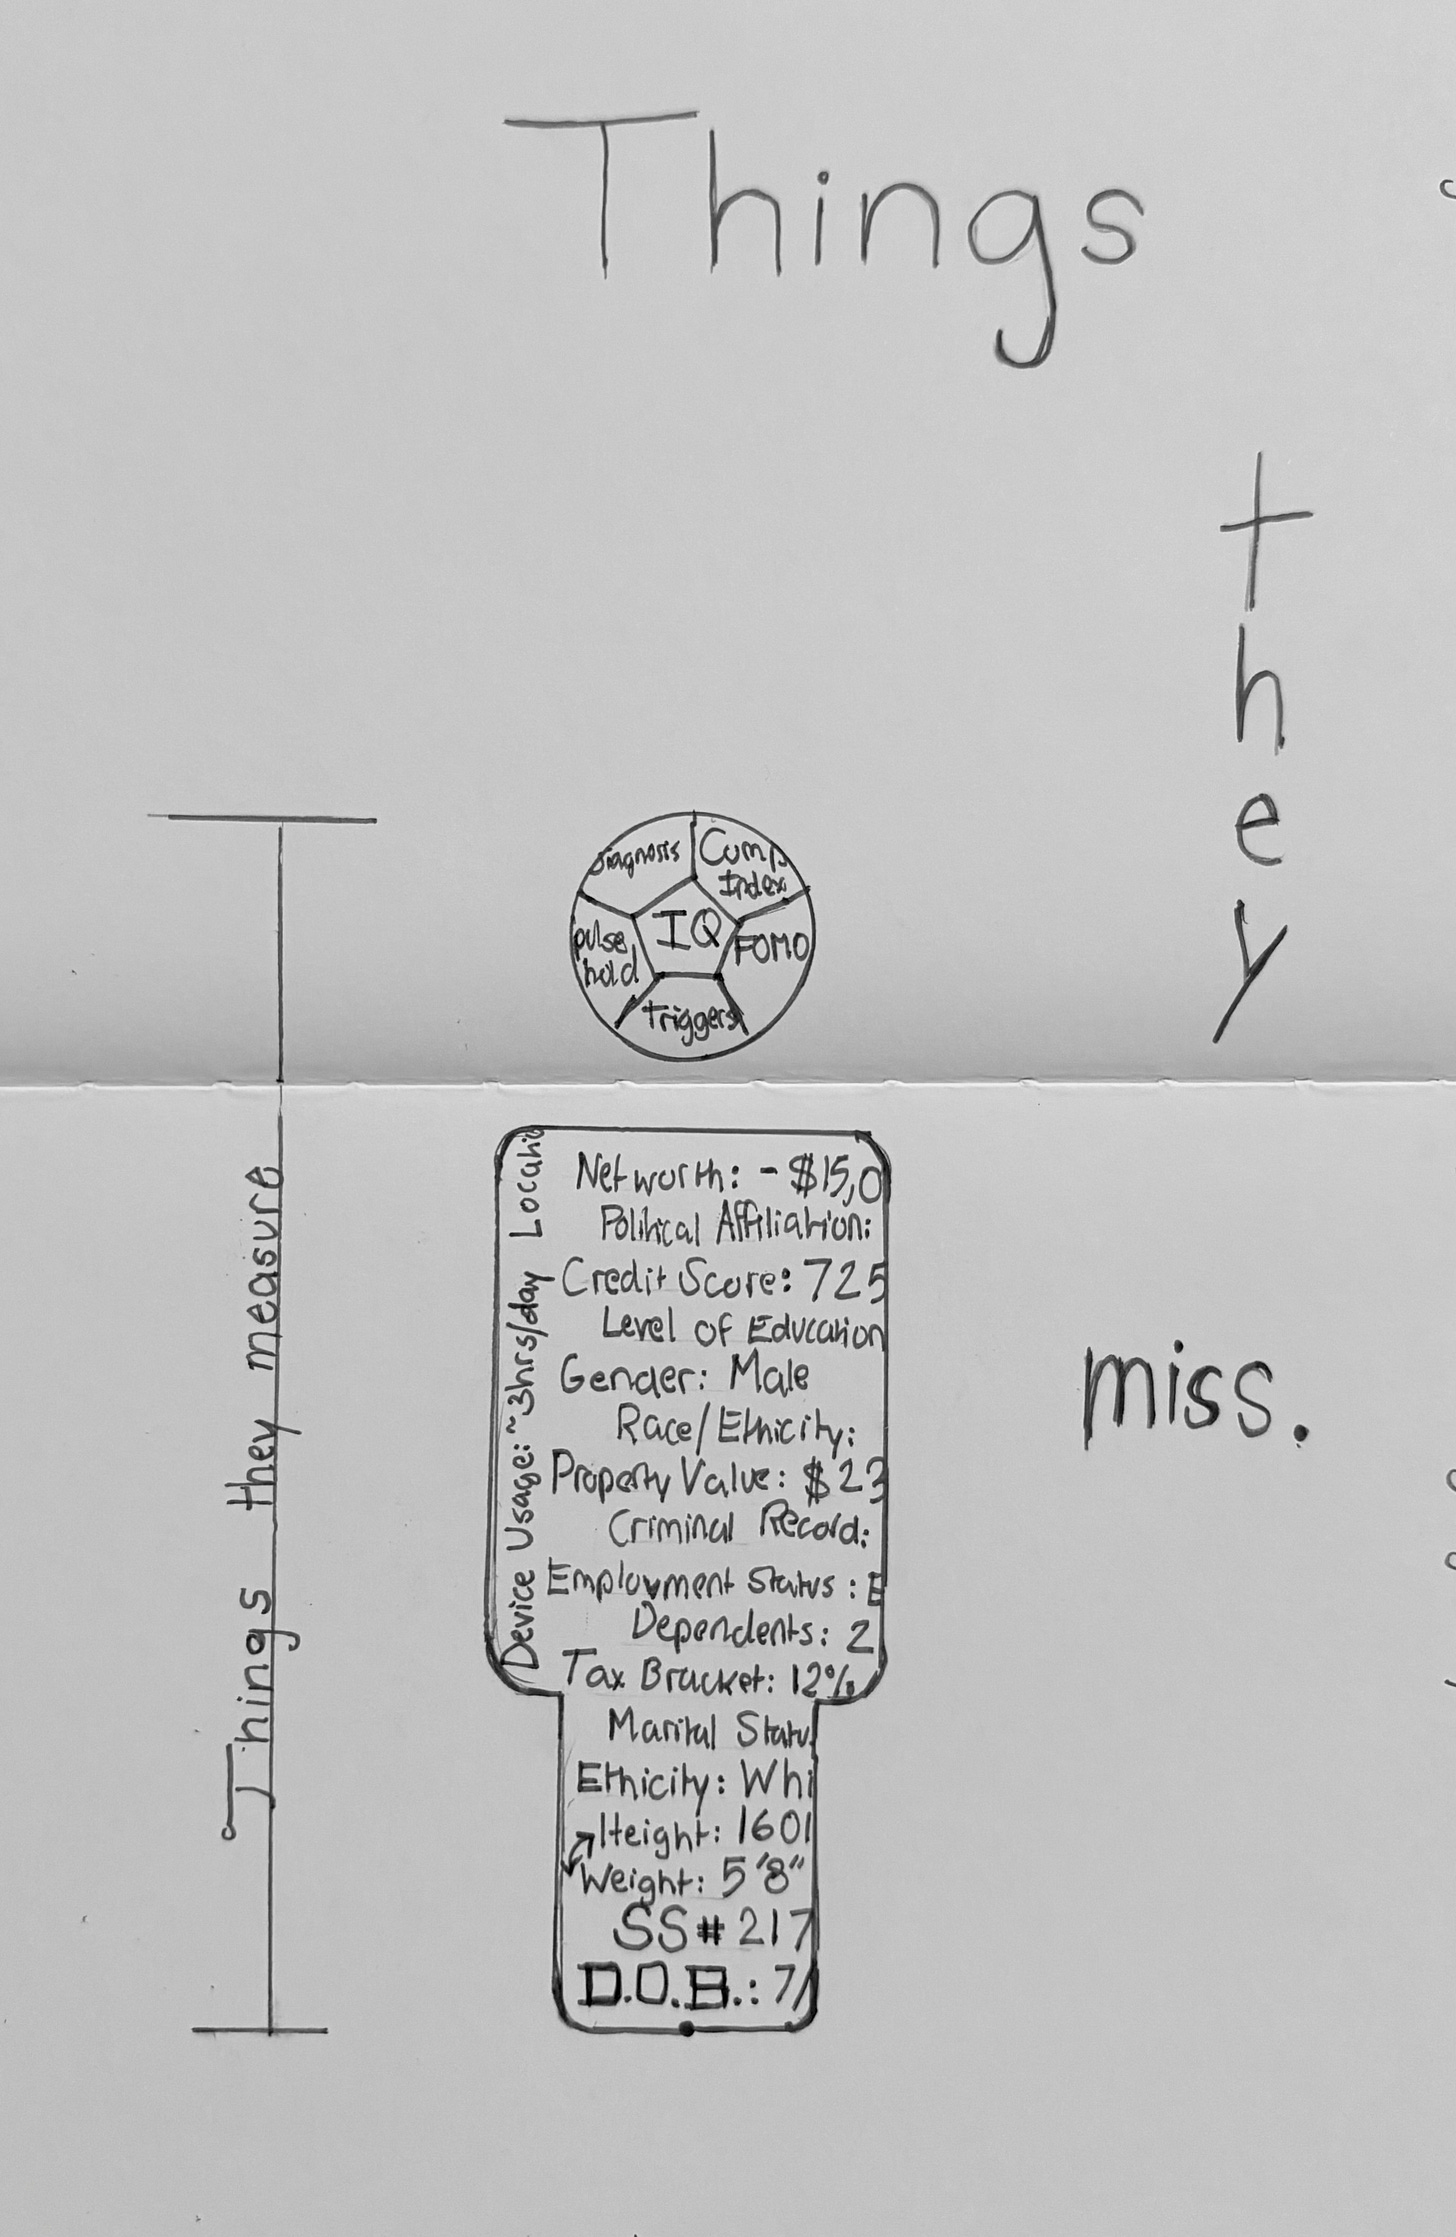 Things
they
miss.
Things they measure
Diagnosis
Comp
Index
IQ
pulse
hold
FOMO
Triggers
Device Usage: ~3hrs/day Locatio
Networth: - $15,0
Political Affiliation:
Credit Score: 725
Level of Education
Gender: Male
Race/Ethicity:
Property Value: $23
Criminal Record:
Employment Status : E
Dependents: 2
Tax Bracket: 12%
Marital Statu
Ethicity: Whi
Height: 160l
Weight: 5'8"
SS# 217
D.O.B.: 7/